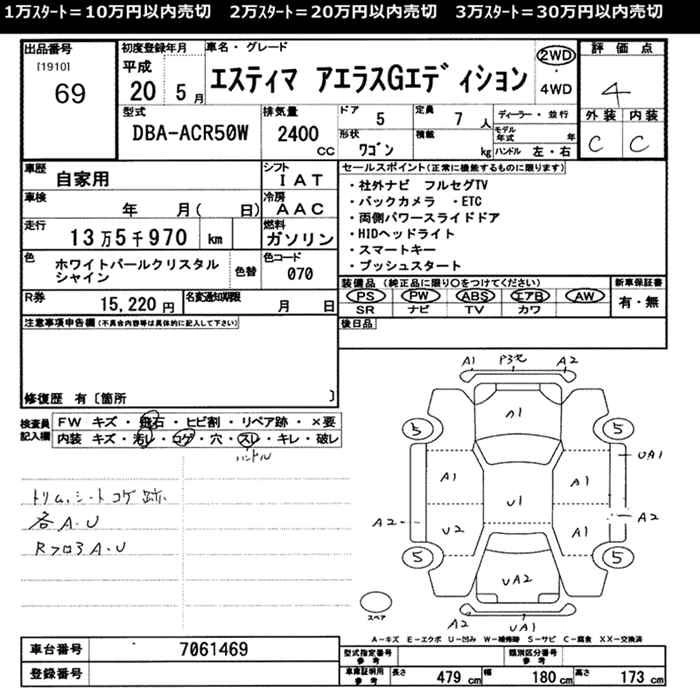 1万ｽﾀｰﾄ＝10万円以内売切　2万ｽﾀｰﾄ＝20万円以内売切　3万ｽﾀｰﾄ＝30万円以内売切
出品番号
[1910]
69
初度登録年月
平成
20 5月
車名・グレード
エスティマ アエラスGエディション
2WD
・
4WD
評価点
4
外装 内装
C C
型式
DBA-ACR50W
排気量
2400
CC
ドア
5
定員
7人
形状
ワゴン
積載
kg
ディーラー・並行
モデル年式 年
ハンドル 左・右
車歴
自家用
シフト
IAT
車検
年 月( 日)
冷房
AAC
走行
13万5千970 km
燃料
ガソリン
色
ホワイトパールクリスタル
シャイン
色替
色コード
070
R券
15,220円
名変通知期限
月 日
セールスポイント(正常に機能するものに限ります)
・社外ナビ フルセグTV
・バックカメラ ・ETC
・両側パワースライドドア
・HIDヘッドライト
・スマートキー
・プッシュスタート
装備品(純正品に限り○をつけてください)
PS PW ABS エアB AW
SR ナビ TV カワ
新車保証書
有・無
後日品
注意事項申告欄(不具合内容等は具体的に記入して下さい)
修復歴 有〔箇所 〕
検査員
記入欄
FW キズ・飛石・ヒビ割・リペア跡・×要
内装 キズ・汚レ・コゲ・穴・スレ・キレ・破レ
ハンドル
トリム、シートコゲ跡
各A・U
RフロアA・U
A1 A2
A1
5 5
UA1
A1 A1
U1
A2 A2
U2 A1
5 5
UA2
スペア
A2 UA1
A－キズ E－エクボ U－凹み W－補修跡 S－サビ C－腐食 XX－交換済
車台番号
7061469
登録番号
型式指定番号
参考
類別区分番号
参考
車庫証明用
参考
長さ 479 cm 幅 180 cm 高さ 173 cm